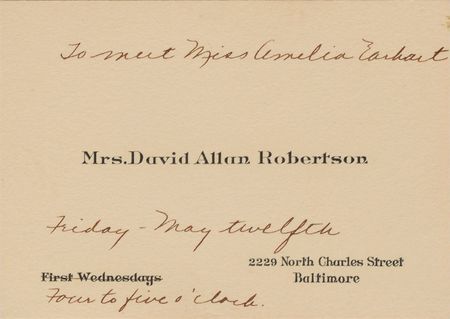 To meet Miss Amelia Earhart
Mrs. David Allan Robertson
Friday - May twelfth
2229 North Charles Street
Baltimore
First Wednesdays
Four to five o'clock.